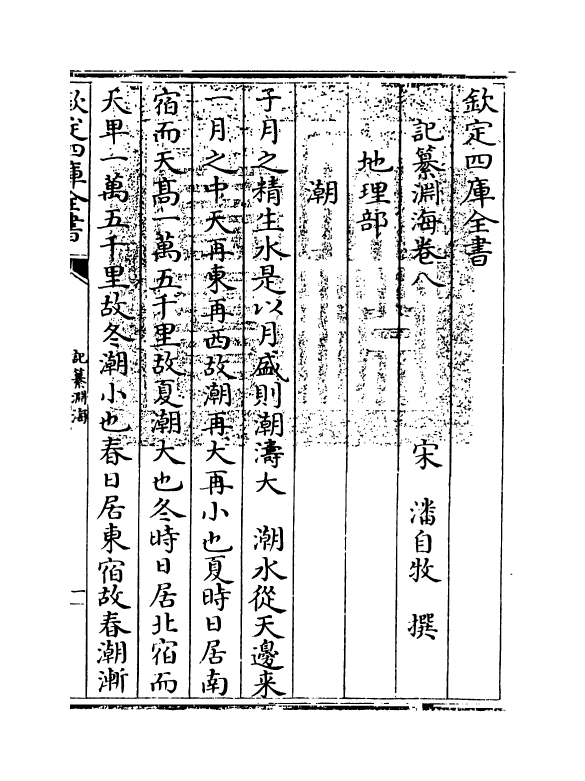 欽定四庫全書
記纂淵海卷八
宋 潘自牧 撰
地理部
潮
子月之精生水是以月盛則潮濤大 潮水從天邊来
一月之中天再東再西故潮再大再小也夏時日居南
宿而天髙一萬五千里故夏潮大也冬時日居北宿而
天卑一萬五千里故冬潮小也春日居東宿故春潮漸
欽定四庫全書
記纂淵海
一